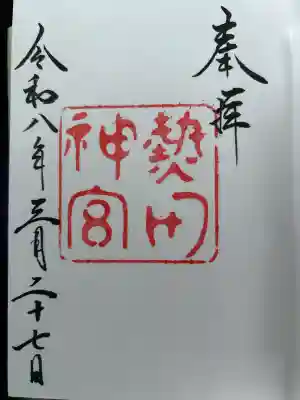 奉拝
熱田
神宮
令和八年三月二十七日